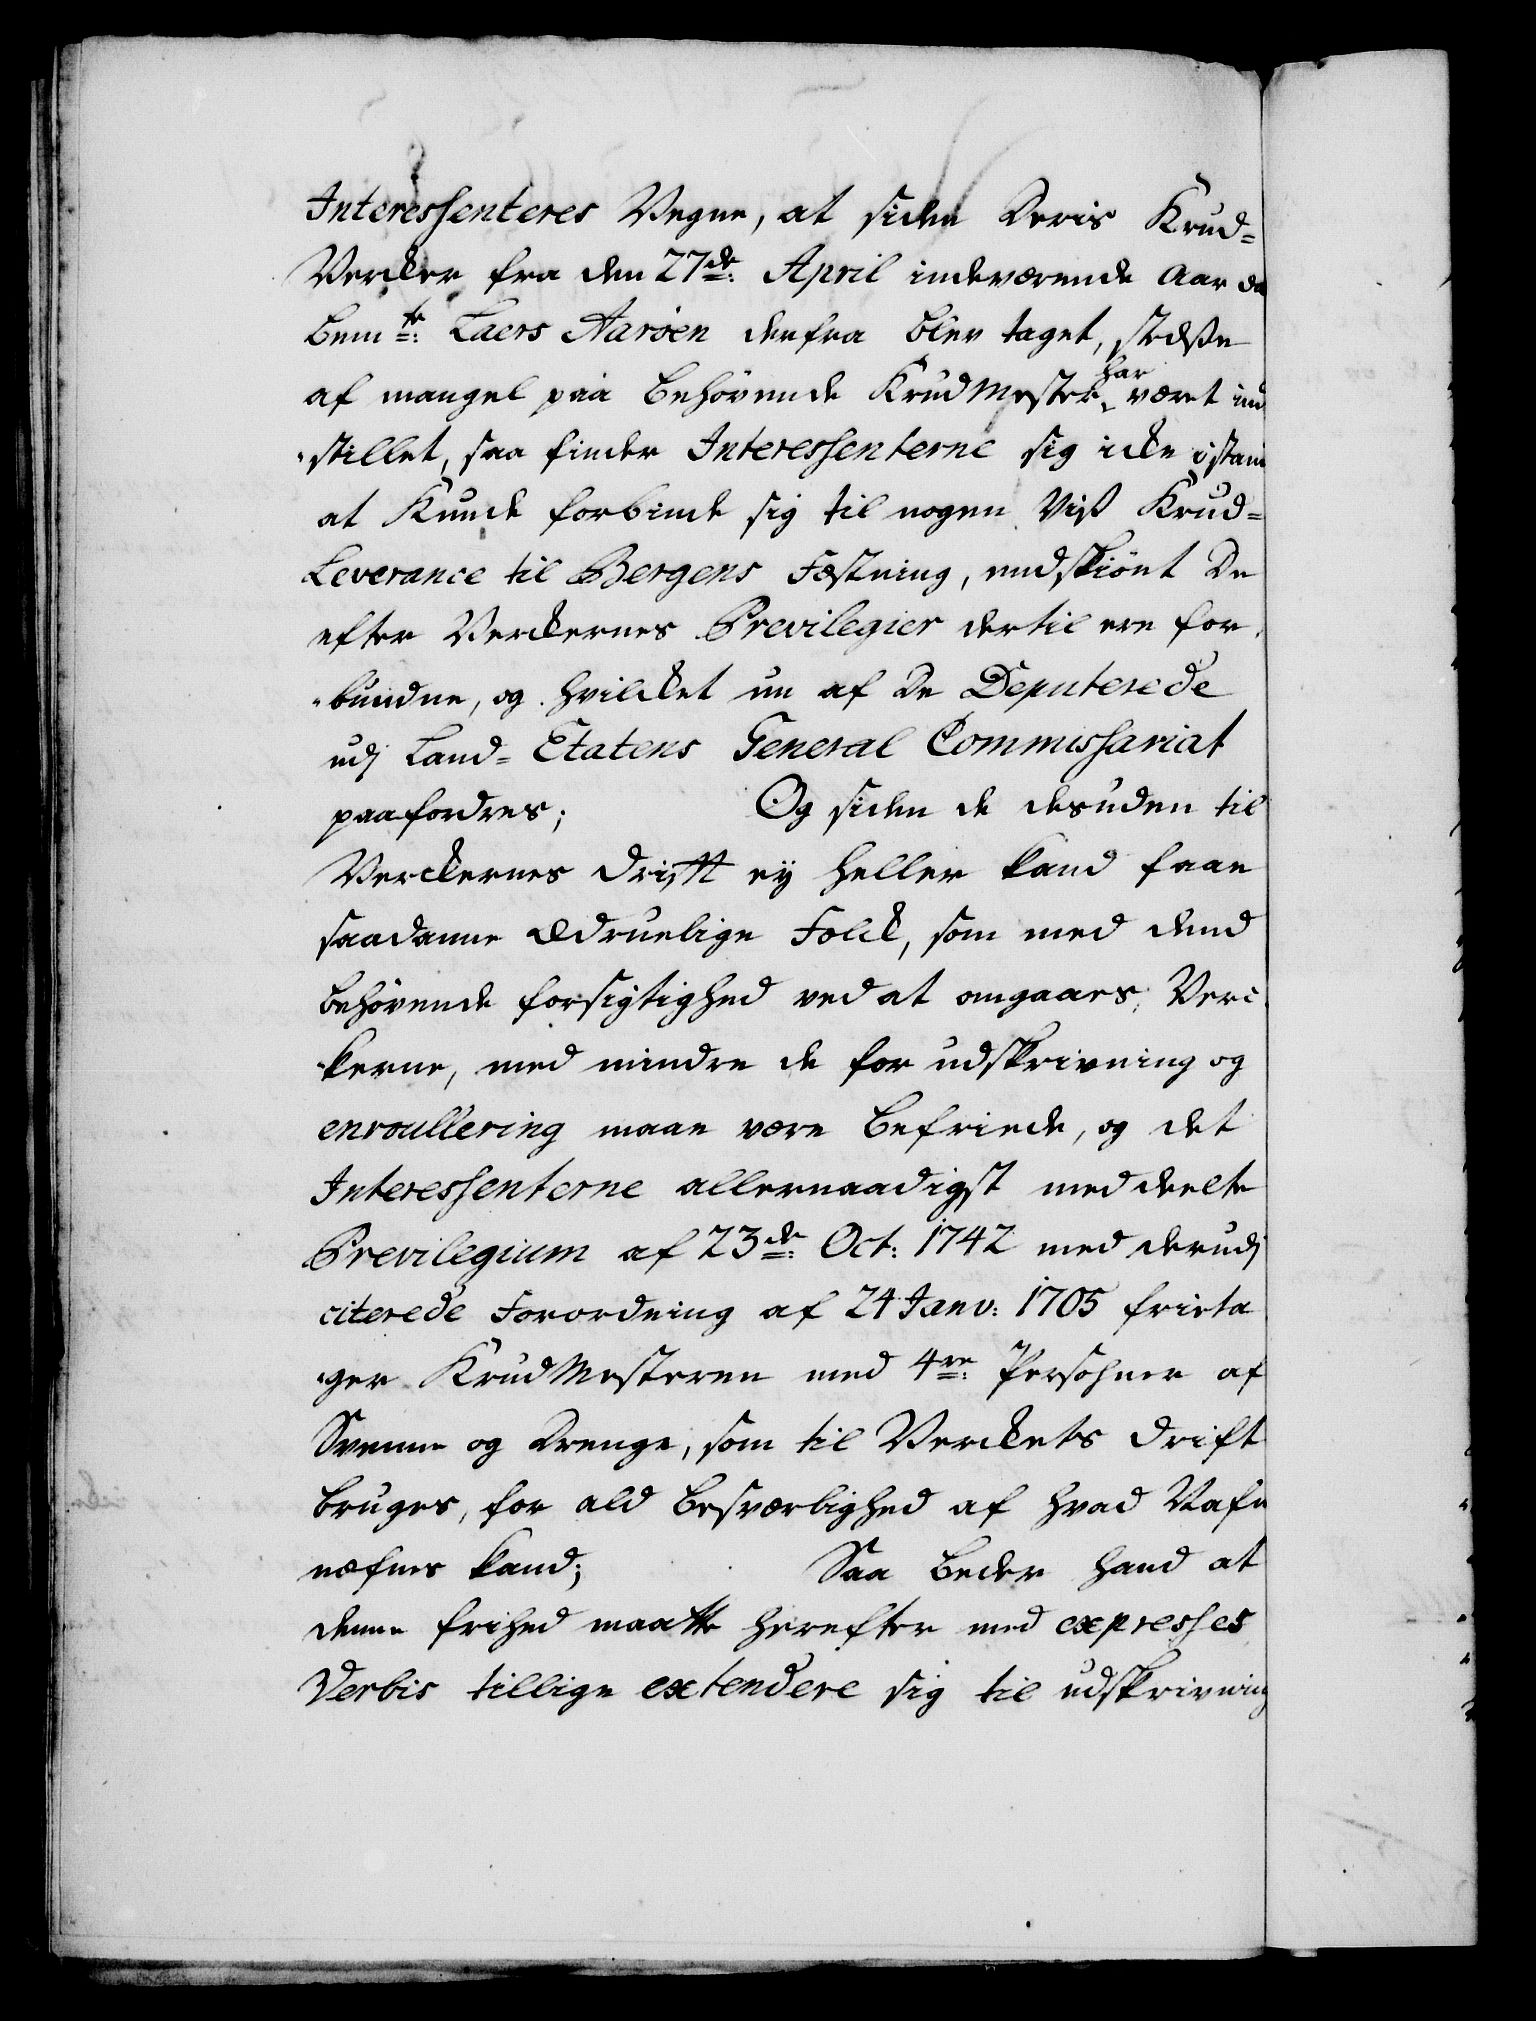 Interessenteres Vegne, at siden Deris Krud=
Verker fra den 27de: April indeværende Aar da
bemte: Laers Aaröen derfra blev taget, stedse
af mangel paa behövende KrudMester har været ind
stillet, saa finder Interessenterne sig icke istand
at Kunde forbinde sig til nogen Viss Krud=
Leverance til Bergens Fæstning, endskiönt De
efter Verckernes Previlegier dertil ere for
bundne, og hvilcket nu af De Deputerede
udj Land=Etatens General Commissariat
paafordres; Og siden de desuden til
Verckernes Drifft ey heller kand faae
saadanne ædruelige Folck, som med dend
behövende forsigtighed ved at omgaaes, Verc
kerne, med mindre de for udskrivning og
enroullering maae være befriede, og det
Interessenterne allernaadigst meddeelte
Previlegium af 23de: Oct: 1742 med derudj
citerede Forordning af 24 Janv: 1705 frieta
ger KrudMesteren med 4re: Persohner af
Svenne og Drenge, som til Verckets Drift
bruges, for ald besværlighed af hvad Nafn
næfnes kand; Saa beder hand at
denne frihed maatte herefter med expresses
Verbis tillige extendere sig til udskrivning